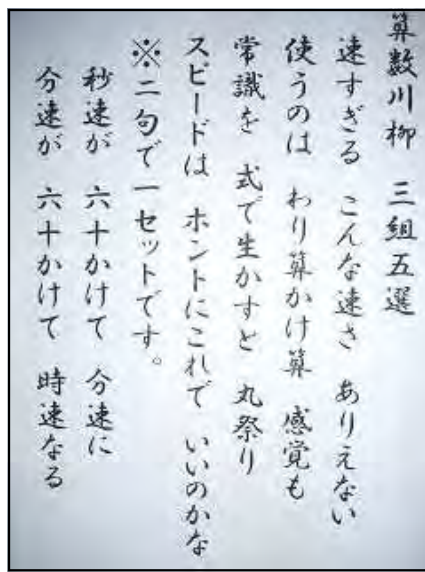 算数川柳　三組五選
速すぎる　こんな速さ　ありえない
使うのは　わり算かけ算　感覚も
常識を　式で生かすと　丸祭り
スピードは　ホントにこれで　いいのかな
※二句で一セットです。
秒速が　六十かけて　分速に
分速が　六十かけて　時速なる